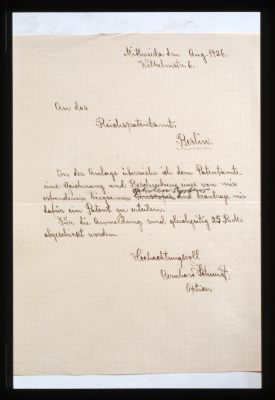 Mittweida den Aug. 1926.
Wilhelmstr. 6.
An das
Reichspatentamt,
Berlin.
In der Anlage übersende ich dem Patentamte
eine Zeichnung und Beschreibung eines von mir
erfundenen und beantrage mir
dafür ein Patent zu erteilen.
Für die Anmeldung sind gleichzeitig 25 Mk.
abgeschickt worden.
Hochachtungsvoll
Bernhard Schmidt
Optiker